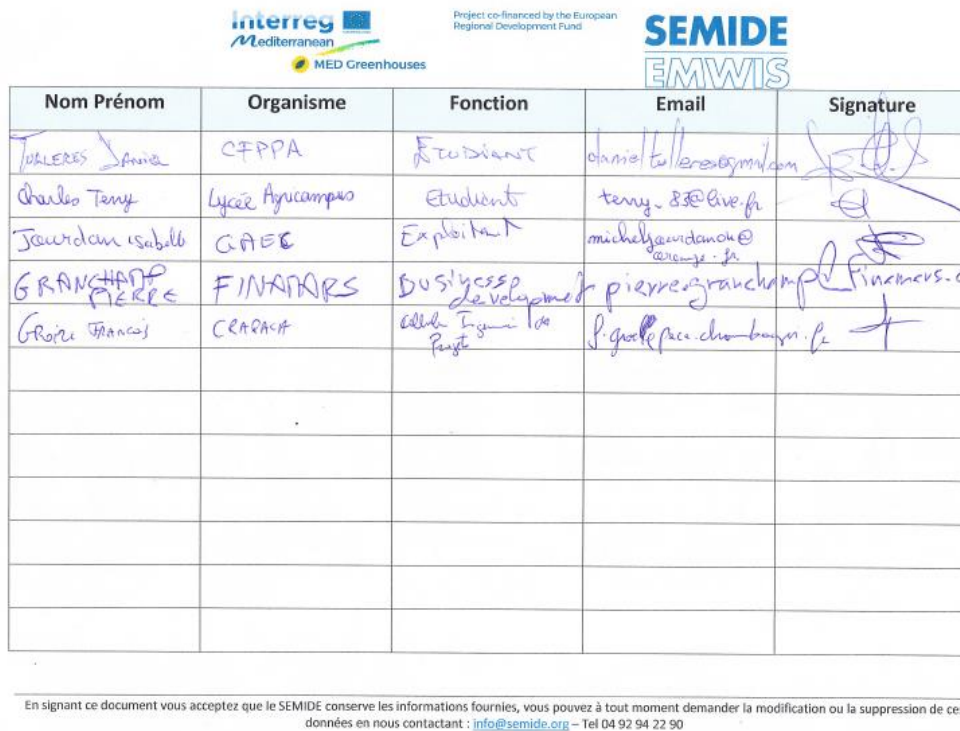 Interreg
Mediterranean
MED Greenhouses
Project co-financed by the European
Regional Development Fund
SEMIDE
EMWIS
Nom Prénom Organisme Fonction Email Signature
Daniel CFPPA ETUDIANT
Charles Terry Lycée Agricampus Etudiant terry-83@live.fr
Jourdan isabelle GAEC Exploitant micheljourdan
orange.fr
GRANCHAMP
PIERRE FINAMARS BUSINESS
development
FRANCOIS
Projet
En signant ce document vous acceptez que le SEMIDE conserve les informations fournies, vous pouvez à tout moment demander la modification ou la suppression de ces
données en nous contactant : info@semide.org – Tel 04 92 94 22 90